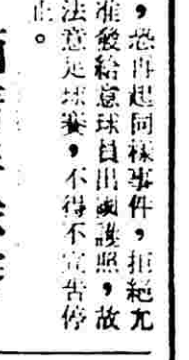 ，恐再起同樣事件，拒絕允
准發給意球員出國護照，故
法意足球賽，不得不宣告停
止。